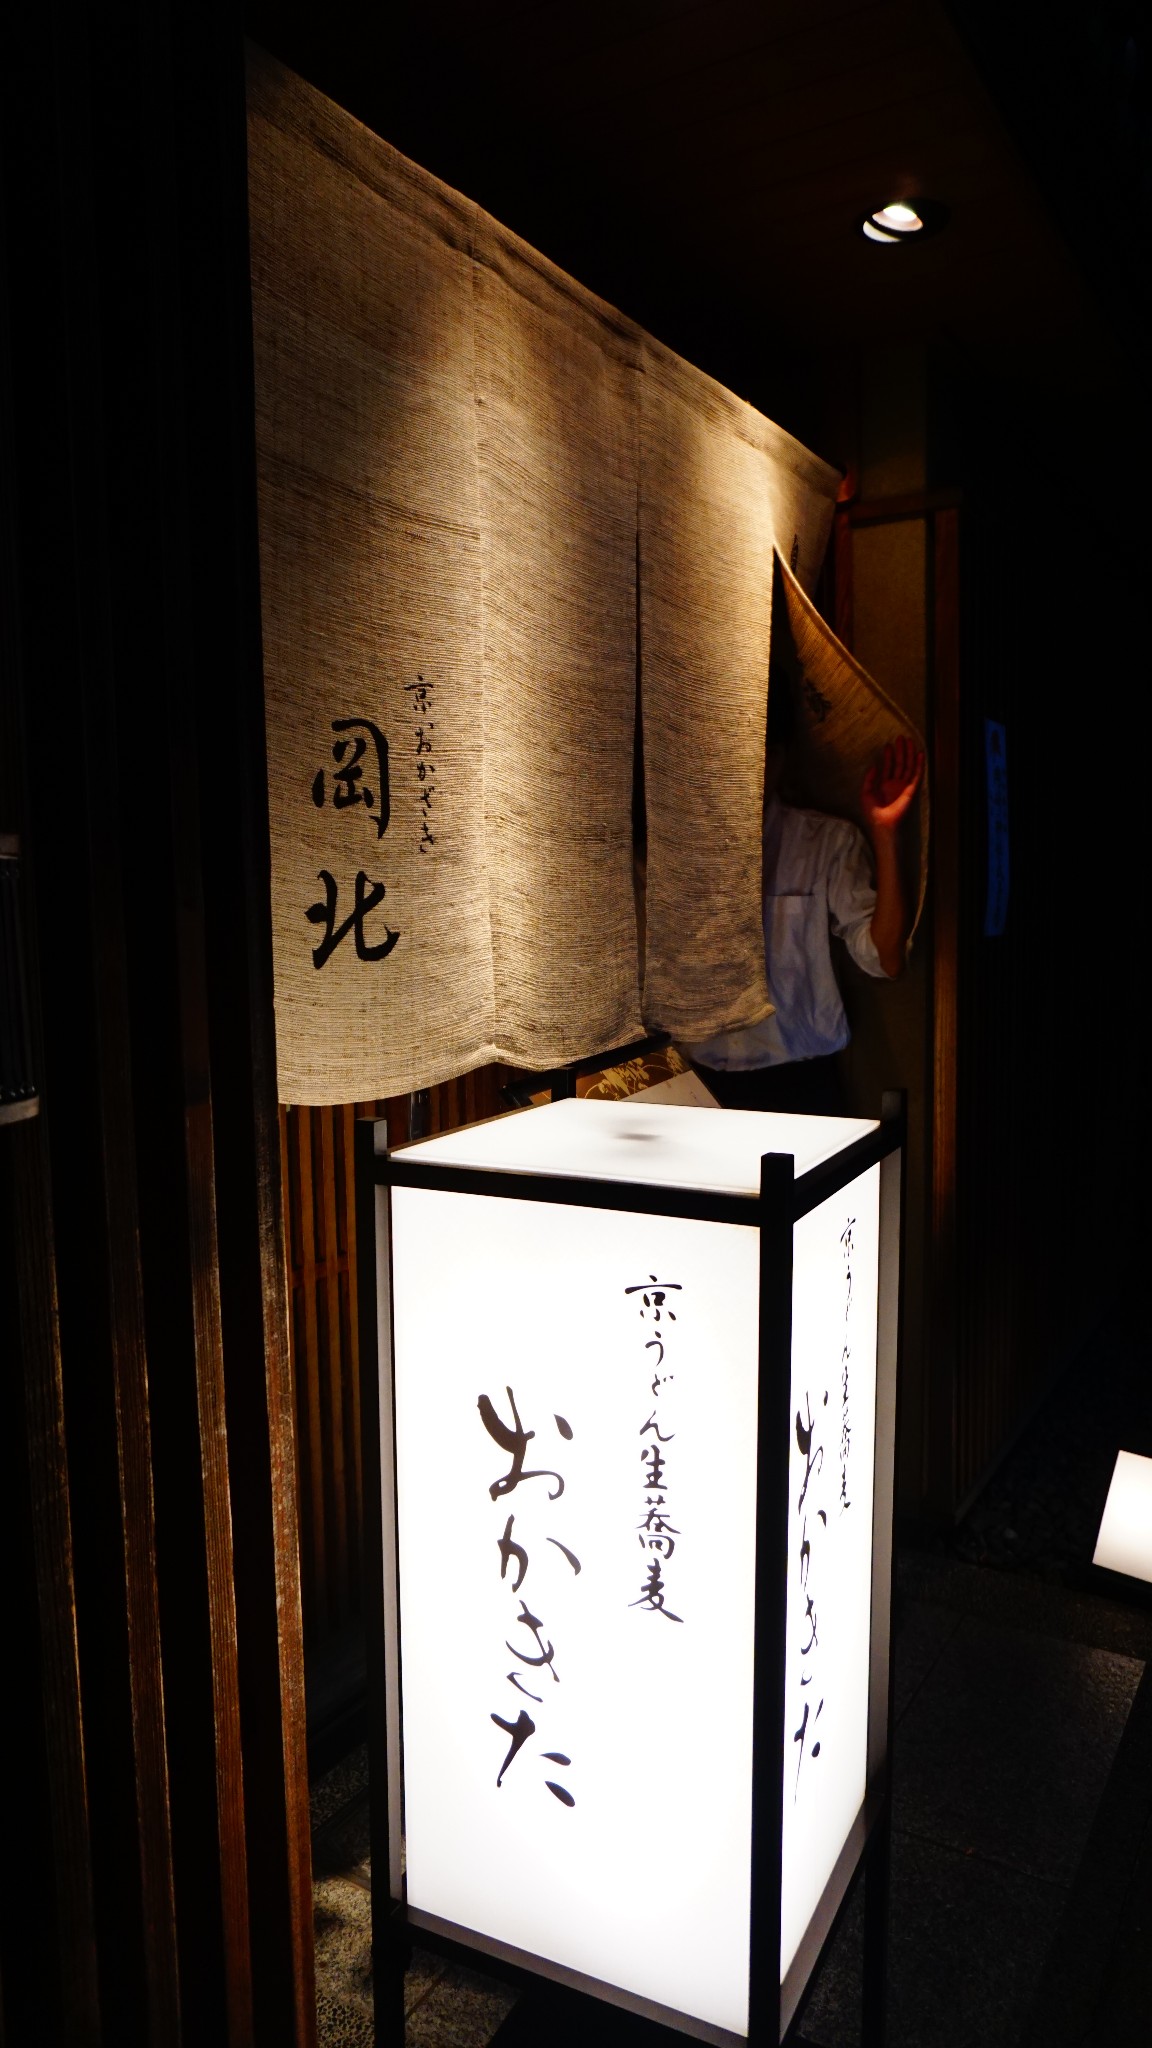 京おかざき
岡北
京うどん生蕎麦
おかきた
京うどん生蕎麦
おかきた